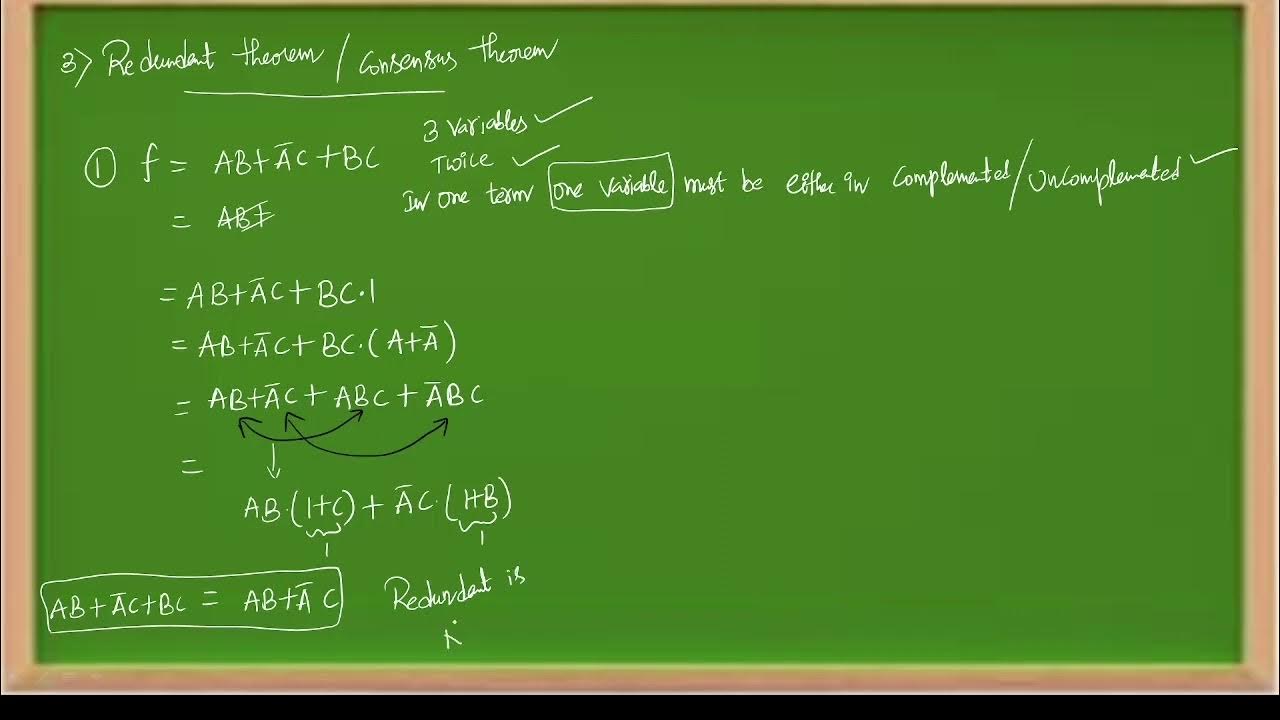 3) Redundant theorem / Consensus theorem
3 Variables
① f = AB+A̅C+BC
Twice
In one term one variable must be either in complemented/uncomplemented
= AB+A̅C+BC·1
= AB+A̅C+BC·(A+A̅)
= AB+A̅C+ABC+A̅BC
=
AB·(1+C)+A̅C·(1+B)
1 1
AB+A̅C+BC = AB+A̅C
Redundant is